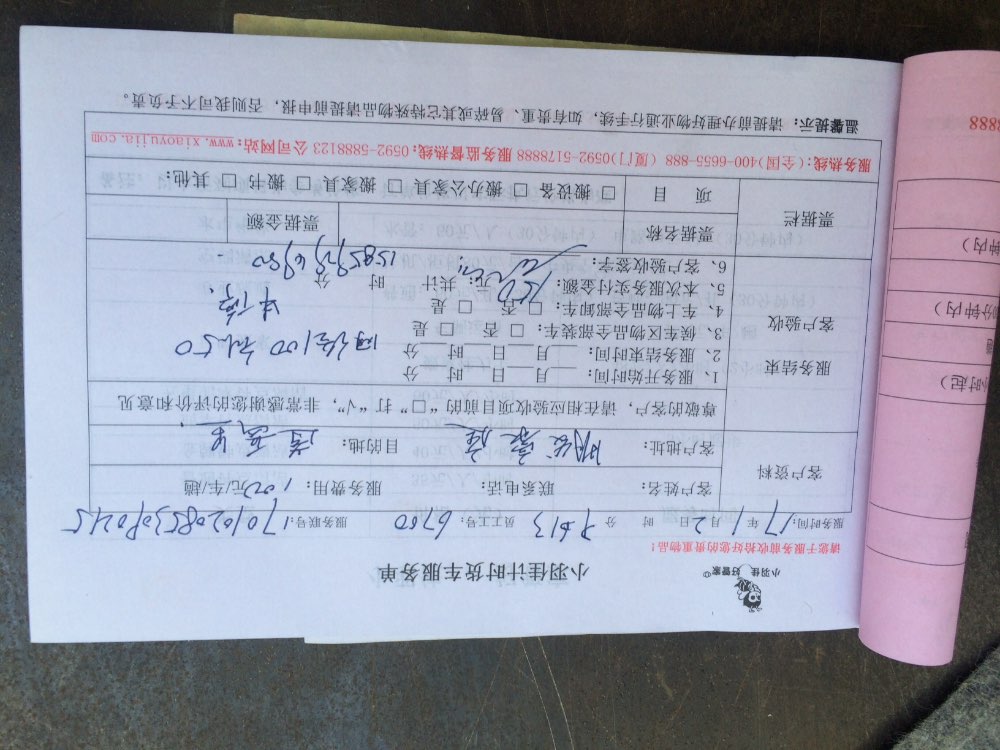 小羽佳 好管家
小羽佳计时货车服务单
请您于服务前收拾好您的贵重物品!
服务时间: 17 年 1 月 2 日 时 分 员工号: 6700 服务联号:
客户资料
客户姓名: 联系电话: 服务费用: 100 元/车/趟
客户地址: 目的地:
尊敬的客户,请在相应验收项目前的“□”打“√”,非常感谢您的评价和意见
服务结束
客户验收
1、服务开始时间: 月 日 时 分
2、服务结束时间: 月 日 时 分
3、候车区物品全部装车: □ 否 □ 是
4、车上物品全部卸车: □ 否 □ 是
5、本次服务实付金额: 150 元; 共计 时 分
6、客户验收签字:
100 50
票据栏
票据名称 票据金额
项目 □ 搬设备 □ 搬办公家具 □ 搬家具 □ 搬片 □ 其他:
服务热线:(全国)400-6655-888 (厦门)0592-5178888 服务监督热线:0592-5888123 公司网站:www.xiaoyujia.com
温馨提示: 请提前办理好物业进行手续,如有贵重、易碎或其它特殊物品请提前申报,否则我司不予负责。
8888
钟内)
分钟内)
小时起)